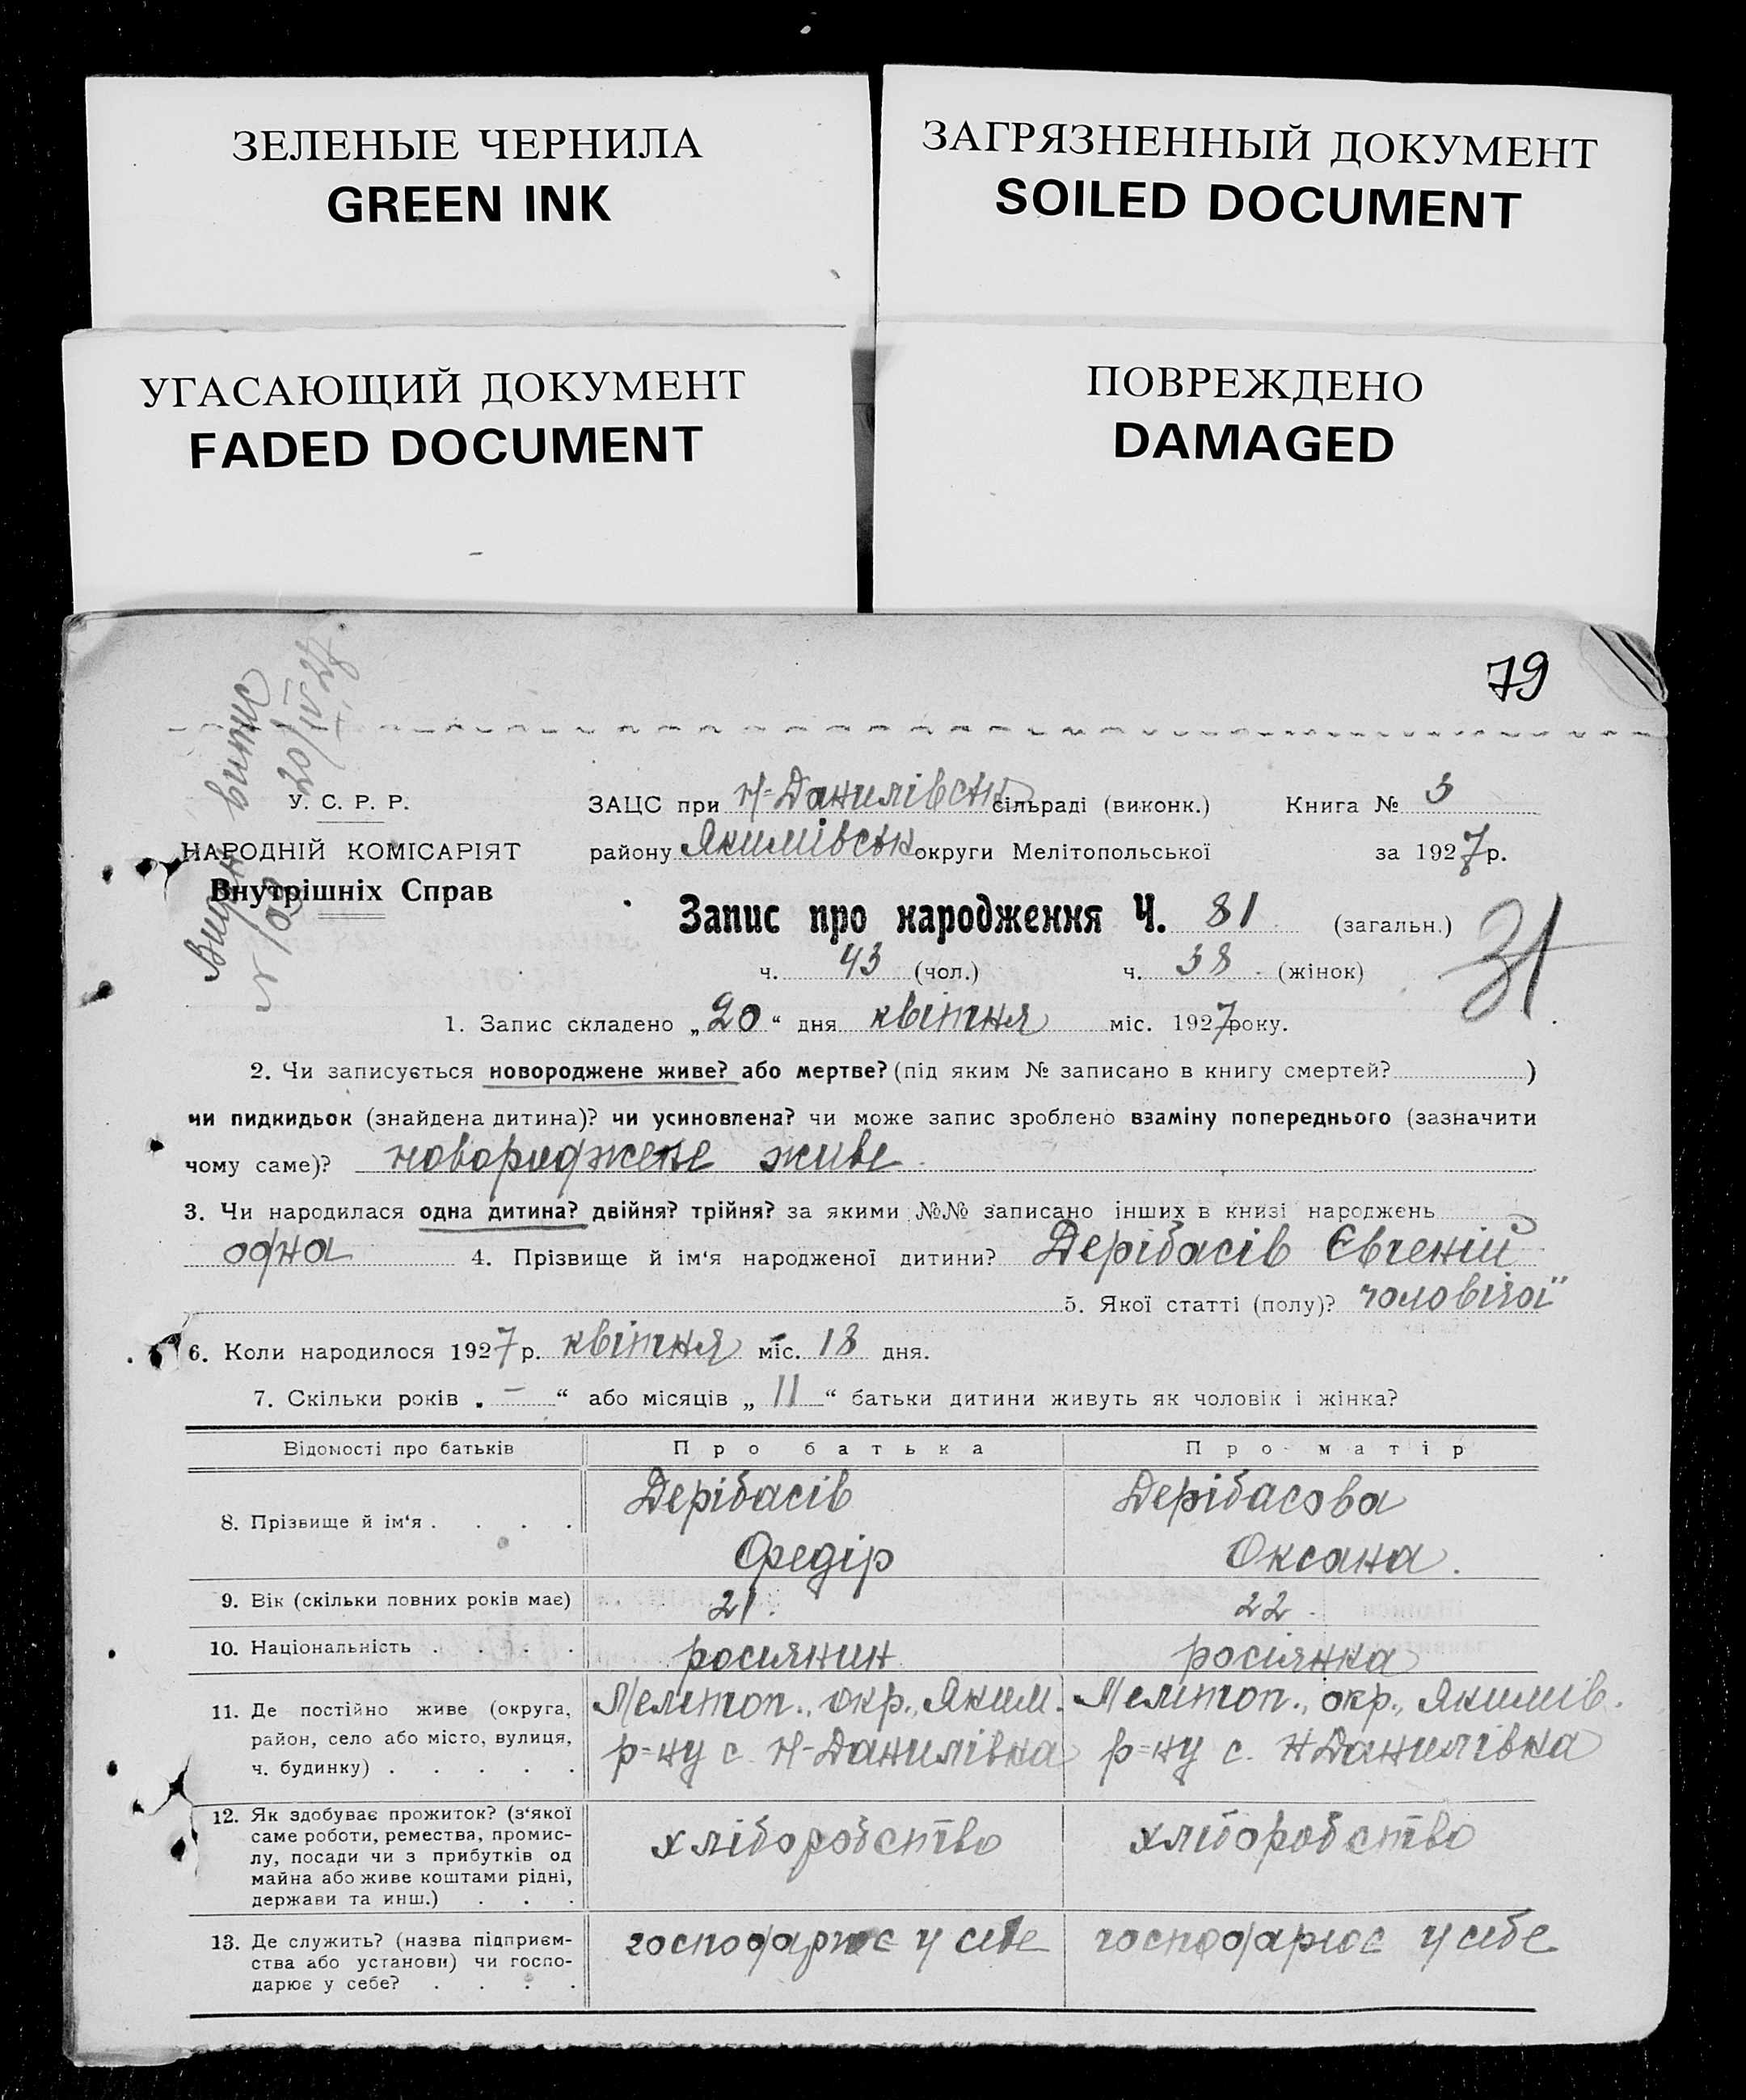 ЗЕЛЕНЫЕ ЧЕРНИЛА
GREEN INK
ЗАГРЯЗНЕННЫЙ ДОКУМЕНТ
SOILED DOCUMENT
УГАСАЮЩИЙ ДОКУМЕНТ
FADED DOCUMENT
ПОВРЕЖДЕНО
DAMAGED
79
Видан витис
20/IV 27
У. С. Р. Р.
НАРОДНІЙ КОМІСАРІЯТ
Внутрішніх Справ
ЗАЦС при Н-Данилівськ сільраді (виконк.) Книга № 3
району Якимівськ округи Мелітопольської за 1927 р.
Запис про народження Ч. 81 (загальн.)
31
ч. 43 (чол.) ч. 38 (жінок)
1. Запис складено „20“ дня квітня міс. 1927 року.
2. Чи записується новороджене живе? або мертве? (під яким № записано в книгу смертей? )
чи пидкидьок (знайдена дитина)? чи усиновлена? чи може запис зроблено взаміну попереднього (зазначити
чому саме)? новориджене живе
3. Чи народилася одна дитина? двійня? трійня? за якими №№ записано інших в книзі народжень
одна 4. Прізвище й ім‘я народженої дитини? Дерібасів Євгеній
5. Якої статті (полу)? чоловічої
6. Коли народилося 1927 р. квітня міс. 18 дня.
7. Скільки років „ – “ або місяців „ 11 “ батьки дитини живуть як чоловік і жінка?
Відомості про батьків Про батька Про матір
8. Прізвище й ім‘я . . . . Дерібасів Федір Дерібасова Оксана.
9. Вік (скільки повних років має) 21. 22.
10. Національність . . . . росиянин росіянка
11. Де постійно живе (округа, Мелітоп., окр., Яким. Мелітоп., окр., Якимів.
район, село або місто, вулиця, р=ну с. Н-Данилівка р=ну с. НДанилівка
ч. будинку) . . . . .
12. Як здобуває прожиток? (з‘якої
саме роботи, ремества, промис- хліборобство хліборобство
лу, посади чи з прибутків од
майна або живе коштами рідні,
держави та инш.) . . .
13. Де служить? (назва підприєм- господарює у себе господарює у себе
ства або установи) чи госпо-
дарює у себе? . . . .